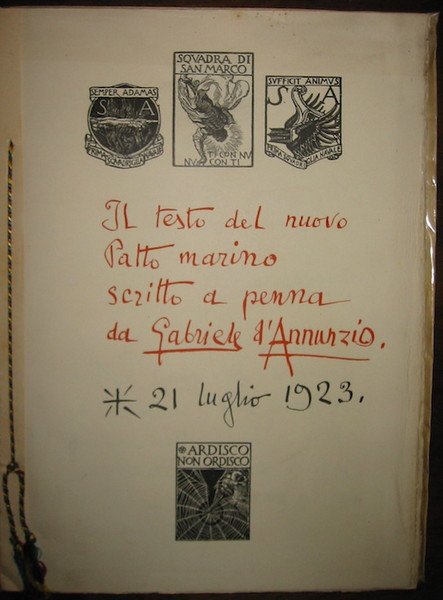 SEMPER ADAMAS
S A
SQVADRA DI
SAN MARCO
TI CON NV
NV CON TI
SVFFICIT ANIMVS
S A
Il testo del nuovo
Patto marino
scritto a penna
da Gabriele d'Annunzio.
21 luglio 1923.
ARDISCO
NON ORDISCO